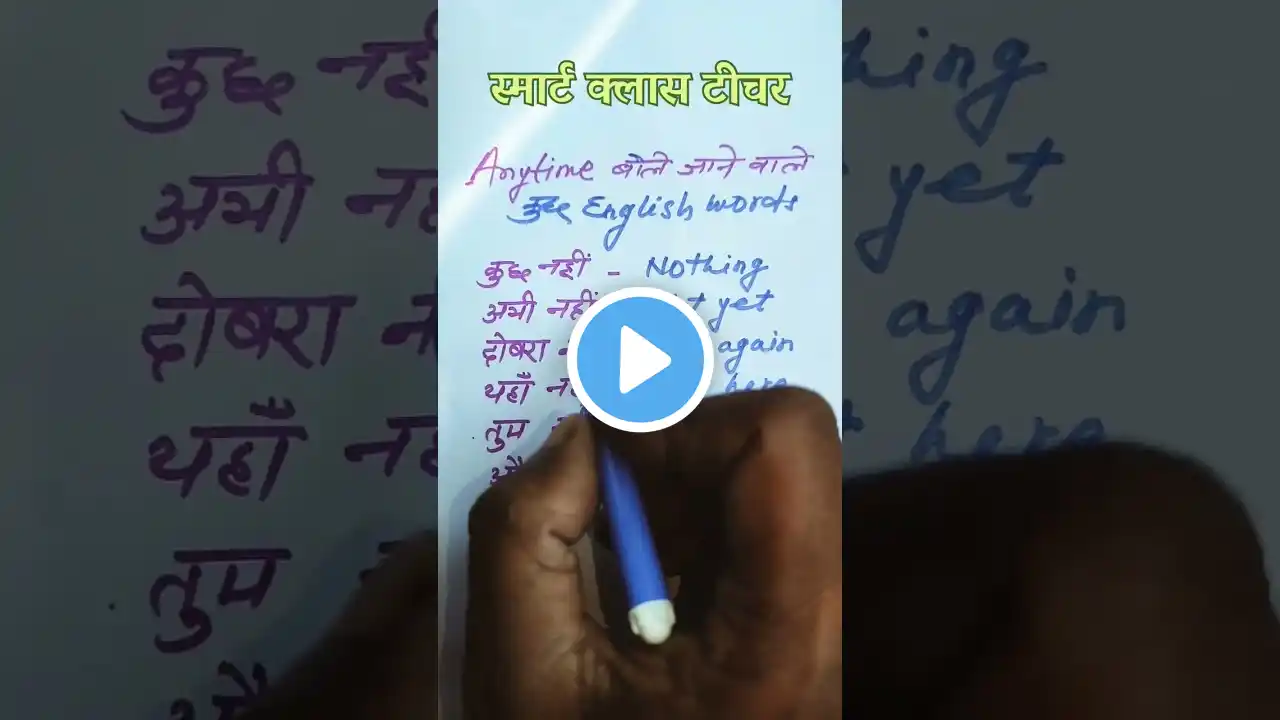 स्मार्ट क्लास टीचर
Anytime बोले जाने वाले
कुछ English words
कुछ नहीं - Nothing
अभी नहीं yet
दोबरा again
यहाँ here
तुम